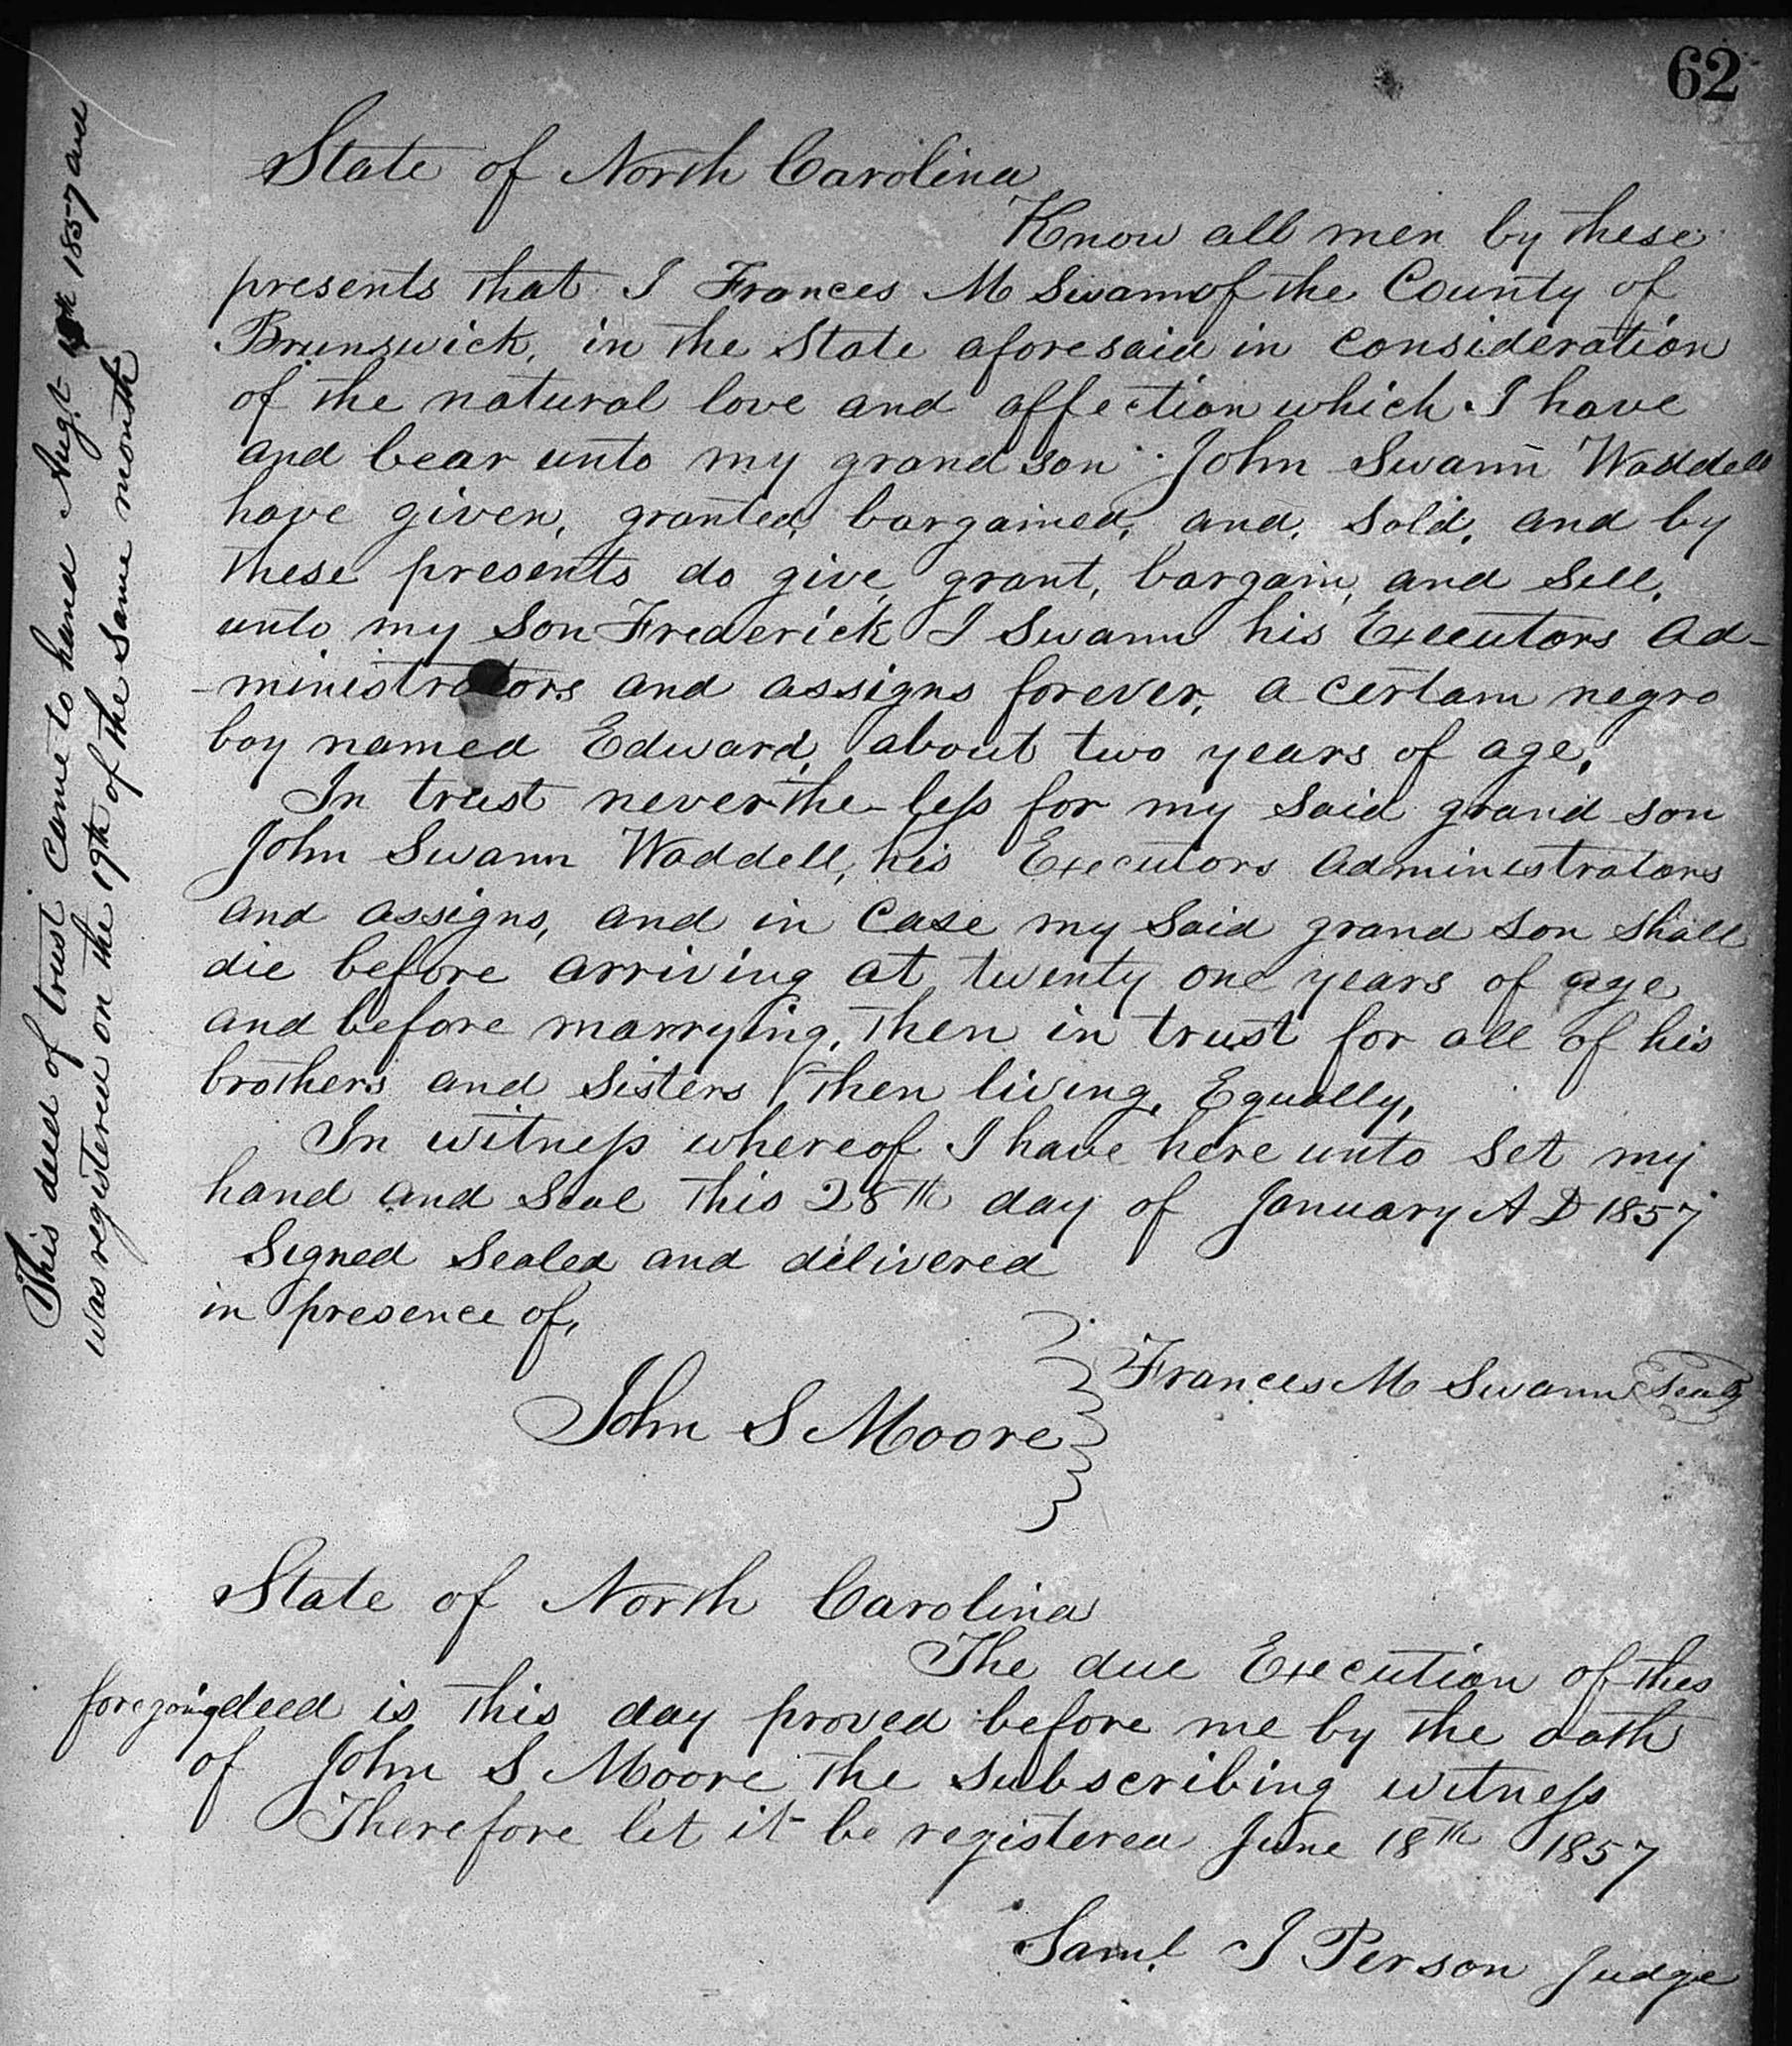 62
State of North Carolina
Know all men by these
presents that I Frances M Swann of the County of
Brunswick, in the State aforesaid in consideration
of the natural love and affection which I have
and bear unto my grand son John Swann Waddell
have given, granted, bargained, and, sold, and by
these presents do give, grant, bargain, and sell,
unto my son Frederick J Swann his Executors Ad-
-ministrators and assigns forever, a certain negro
boy named Edward, about two years of age,
In trust never-the-less for my said grand son
John Swann Waddell, his Executors Administrators
and assigns, and in case my said grand son shall
die before arriving at twenty one years of age
and before marrying, then in trust for all of his
brothers and sisters then living, Equally,
In witness whereof I have here unto set my
hand and seal this 28th day of January A D 1857
Signed Sealed and delivered
in presence of,
Frances M Swann Seal
John S Moore
State of North Carolina
The due Execution of this
foregoing deed is this day proved before me by the oath
of John S Moore the subscribing witness
Therefore let it be registered June 18th 1857
Saml J Person Judge
This deed of trust came to hand Augt 1857 and
was registered on the 19th of the same month